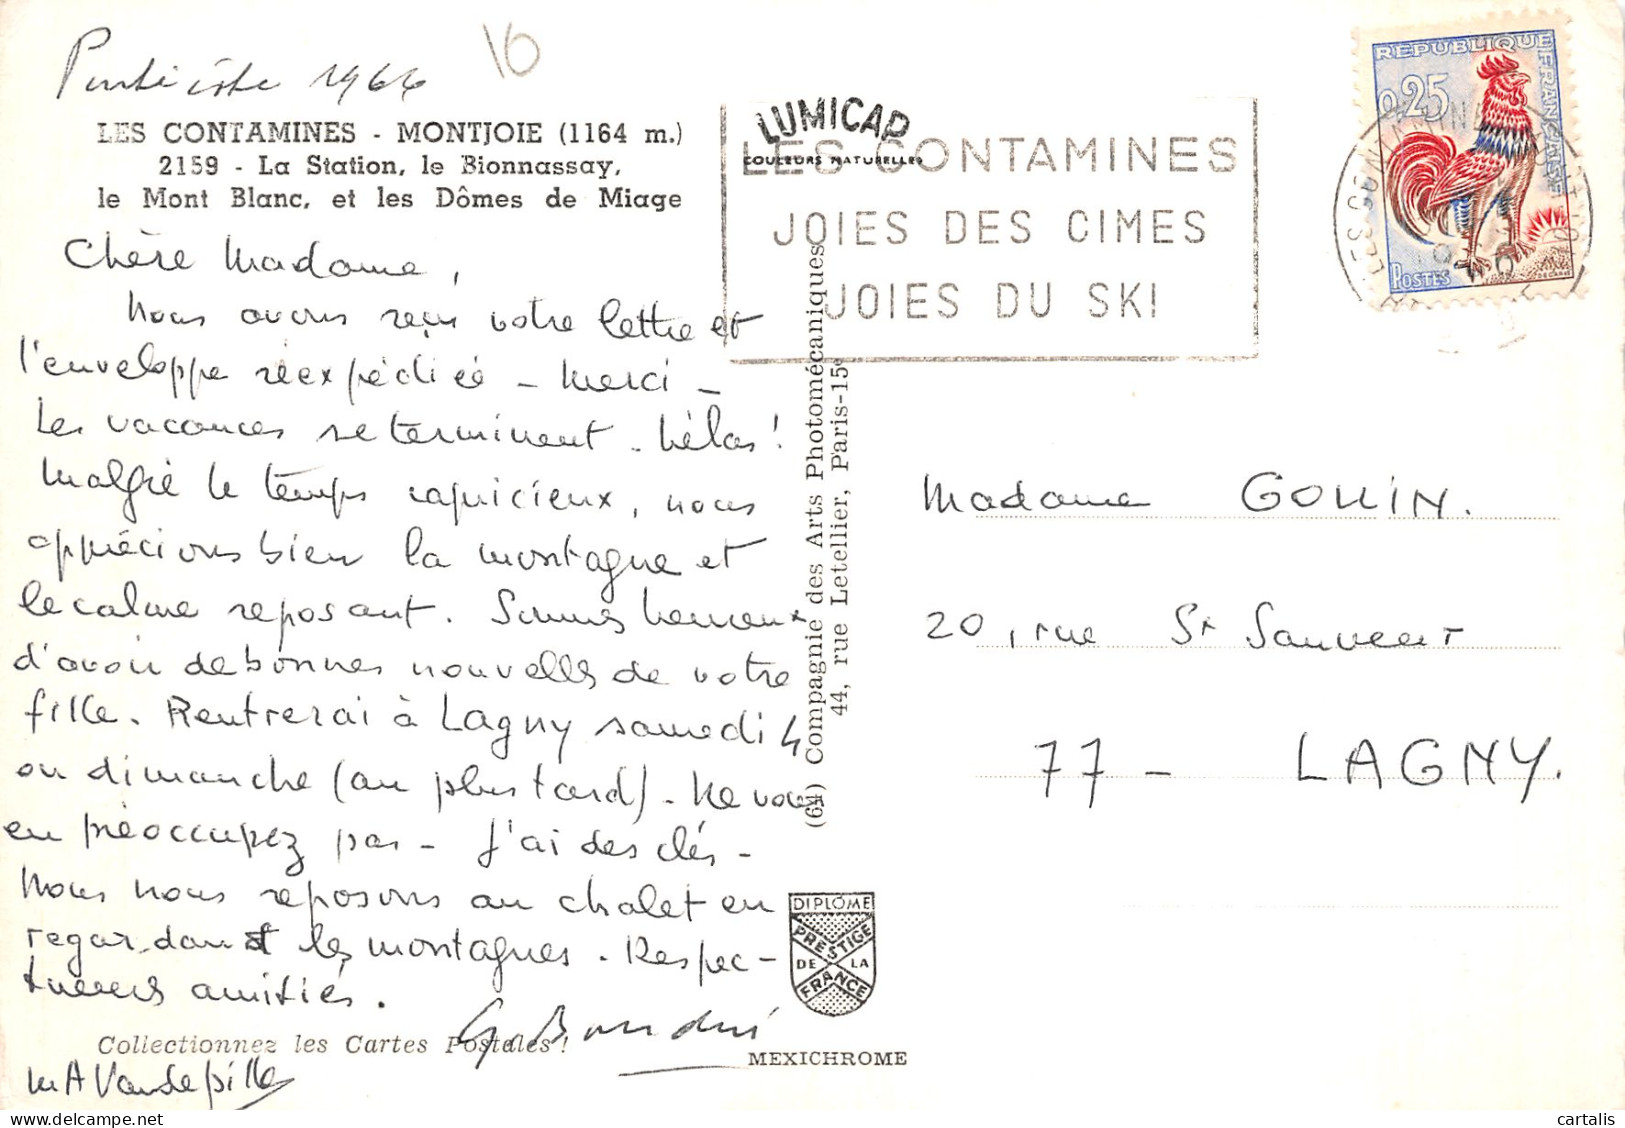 Pentecôte 1966
16
LES CONTAMINES - MONTJOIE (1164 m.)
2159 - La Station, le Bionnassay,
le Mont Blanc, et les Dômes de Miage
Chère Madame,
Nous avons reçu votre lettre et
l'enveloppe réexpédiée - Merci -
Les vacances se terminent - hélas !
Malgré le temps capricieux, nous
apprécions bien la montagne et
le calme reposant. Sommes heureux
d'avoir de bonnes nouvelles de votre
fille. Rentrerai à Lagny samedi 4
ou dimanche (au plus tard) - Ne vous
en préoccupez pas - J'ai des clés -
Nous nous reposons au chalet en
regardant les montagnes. Respec-
tueuses amitiés.
Collectionnez les Cartes Postales !
LUMICAP
COULEURS NATURELLES
LES CONTAMINES
JOIES DES CIMES
JOIES DU SKI
(64) Compagnie des Arts Photomécaniques
44, rue Letellier, Paris-15e
DIPLÔME
PRESTIGE
DE LA
FRANCE
MEXICHROME
REPUBLIQUE FRANÇAISE
0,25
POSTES
Madame GOUIN.
20, rue St Sauveur
77 - LAGNY.
cartalis